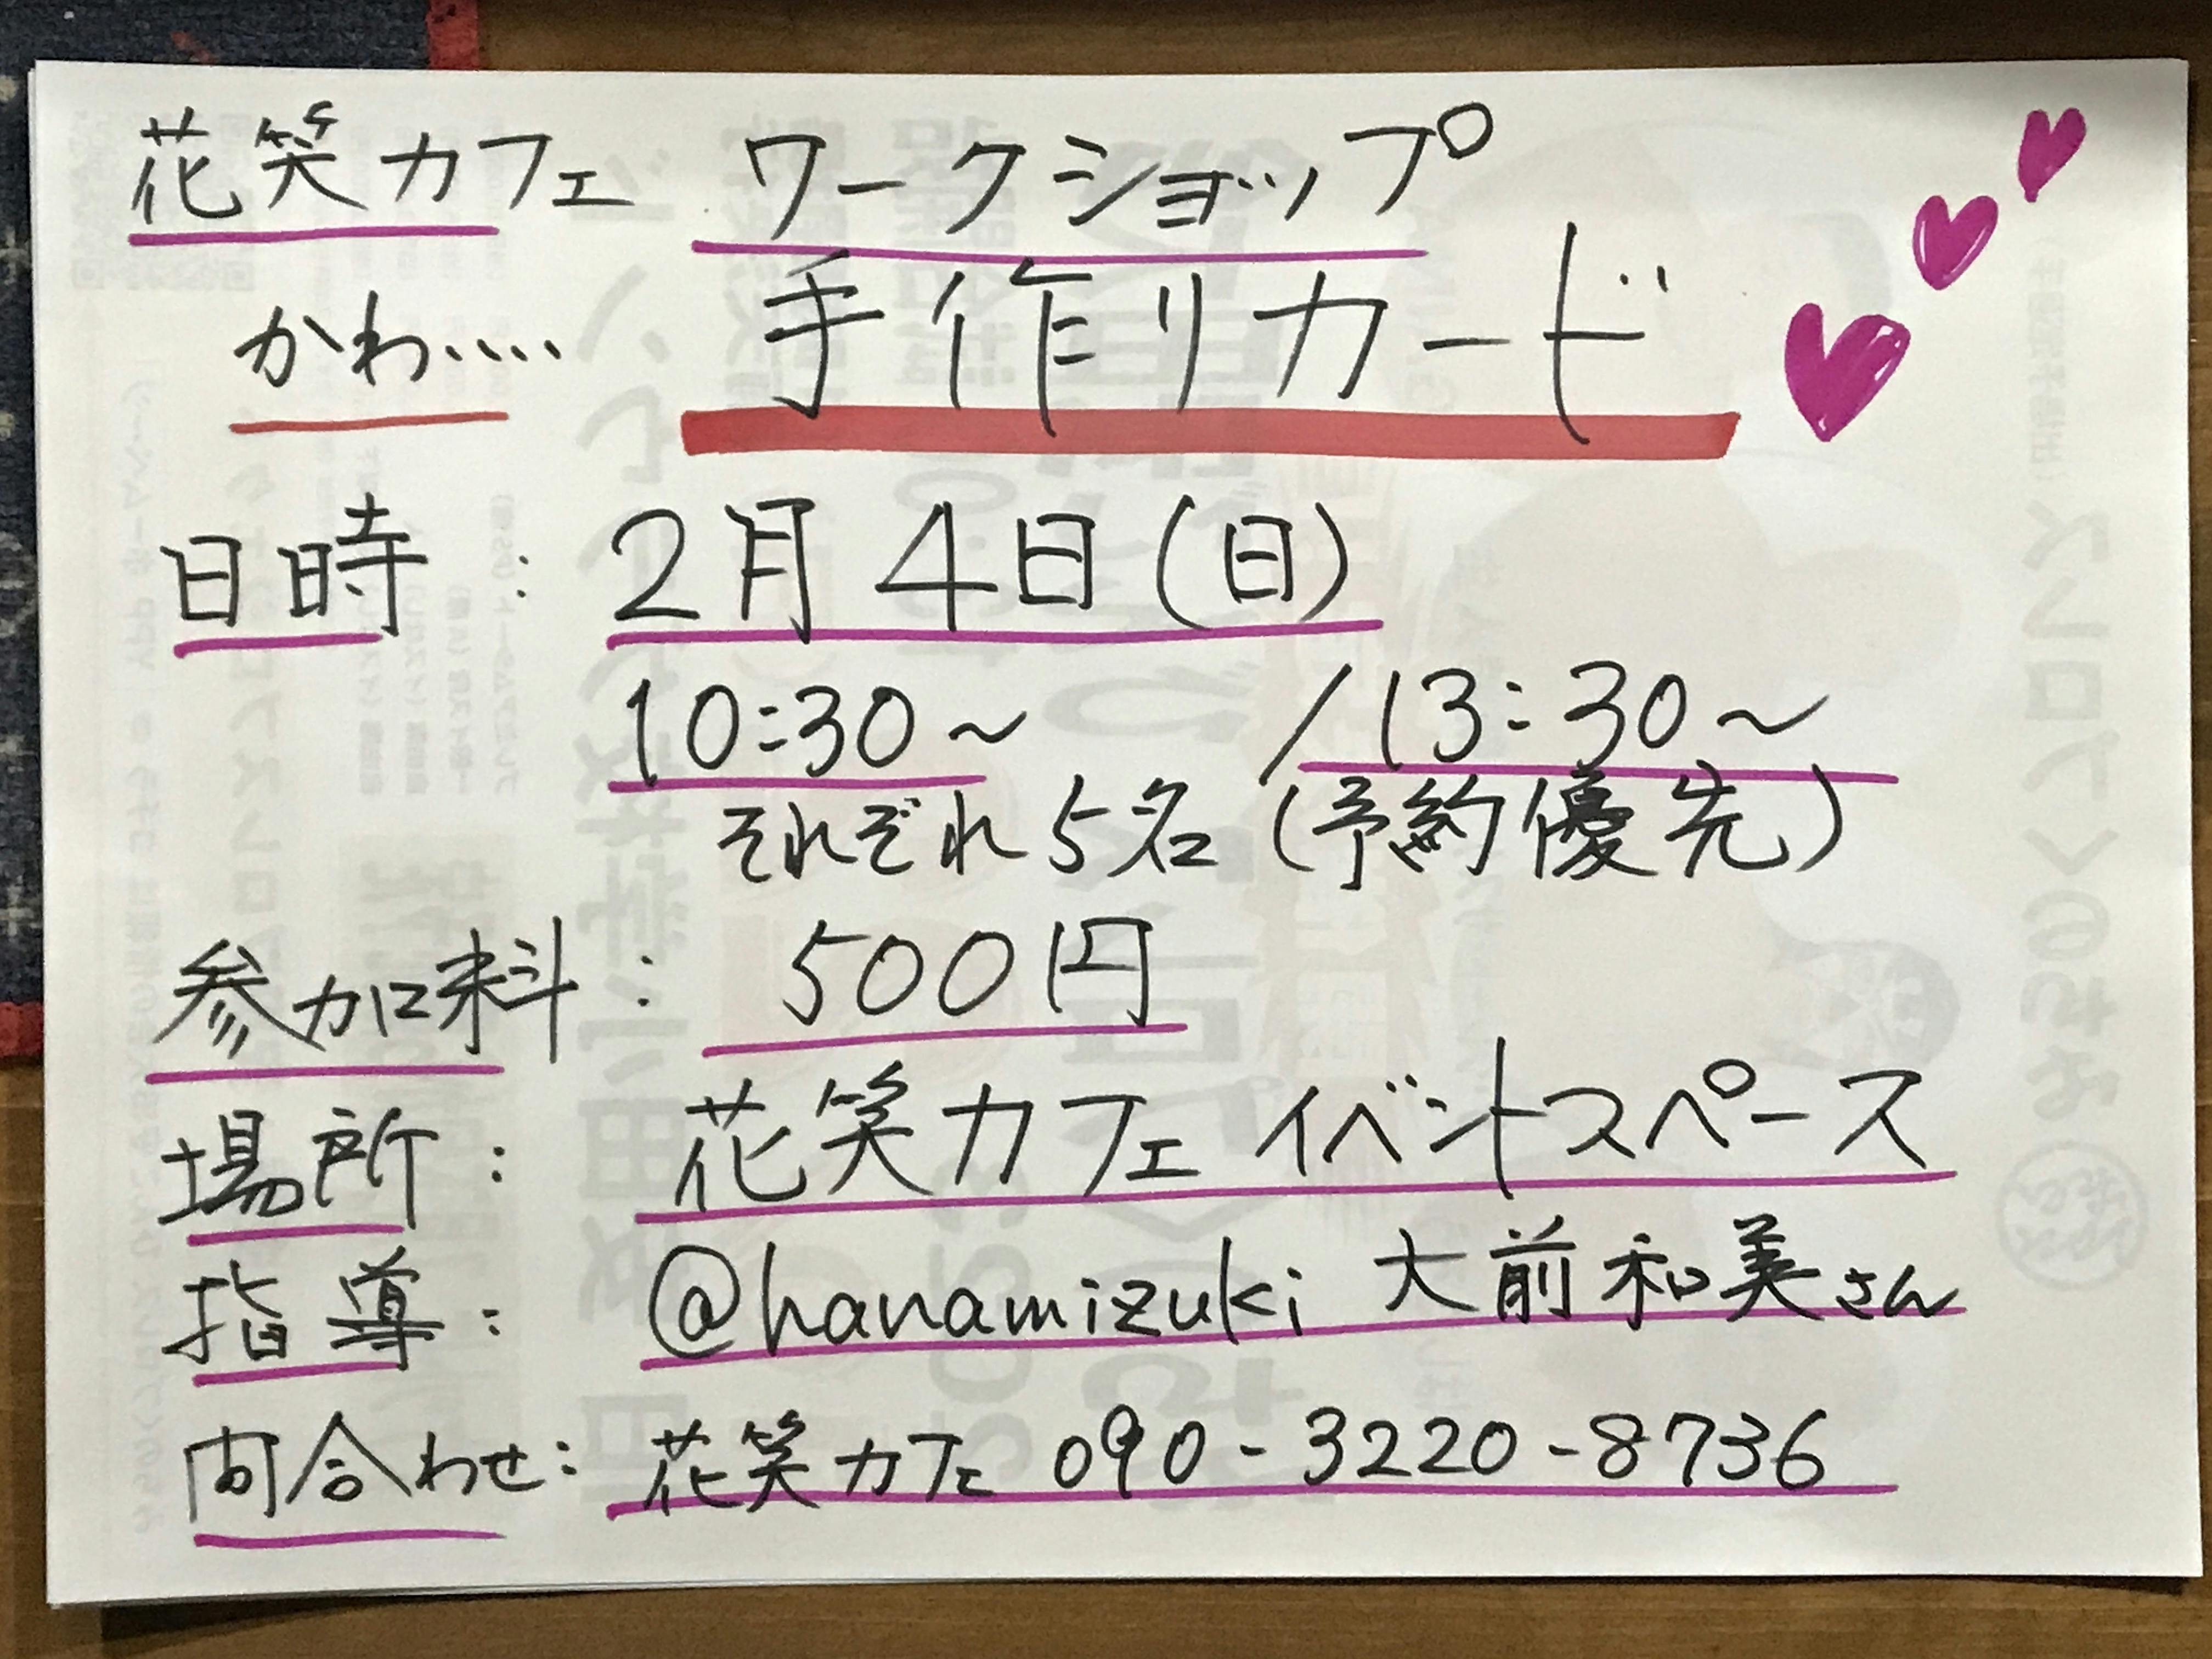 花笑カフェ ワークショップ
かわ‥‥ 手作りカード
日時： 2月4日(日)
10:30～ /13:30～
それぞれ5名(予約優先)
参加料： 500円
場所： 花笑カフェ イベントスペース
指導： @hanamizuki 大前和美さん
問合わせ： 花笑カフェ 090-3220-8736